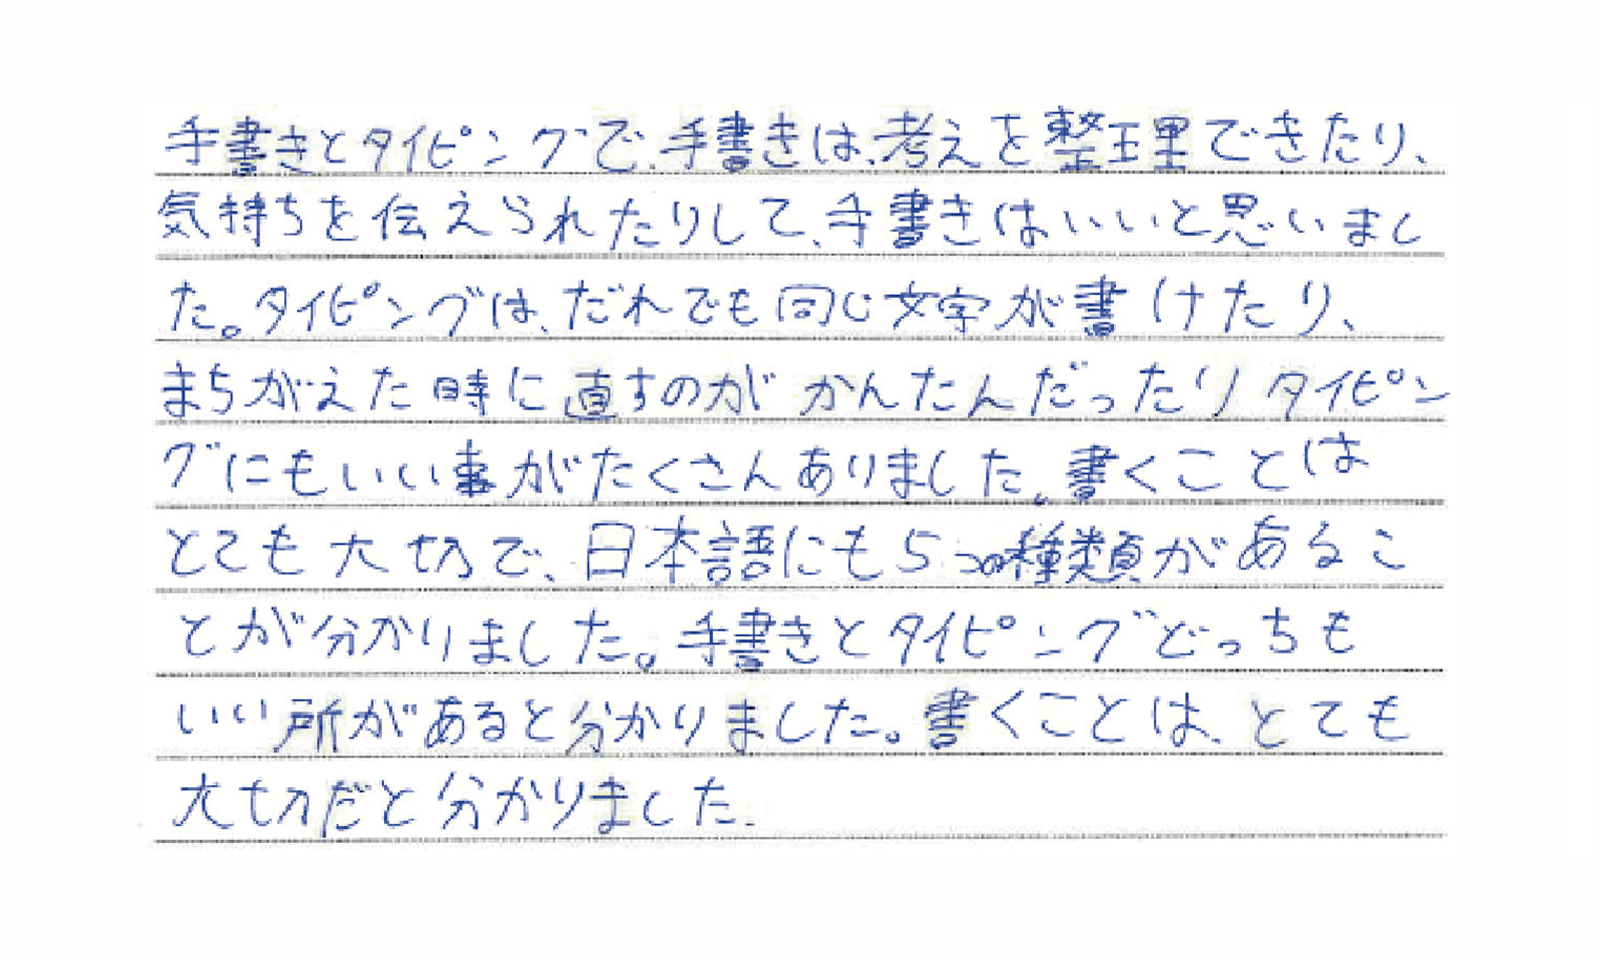 手書きとタイピングで、手書きは、考えを整理できたり、
気持ちを伝えられたりして、手書きはいいと思いまし
た。タイピングは、だれでも同じ文字が書けたり、
まちがえた時に直すのがかんたんだったりタイピン
グにもいい事がたくさんありました。書くことは
とても大切で、日本語にも5つの種類があるこ
とが分かりました。手書きとタイピングどっちも
いい所があると分かりました。書くことは、とても
大切だと分かりました.